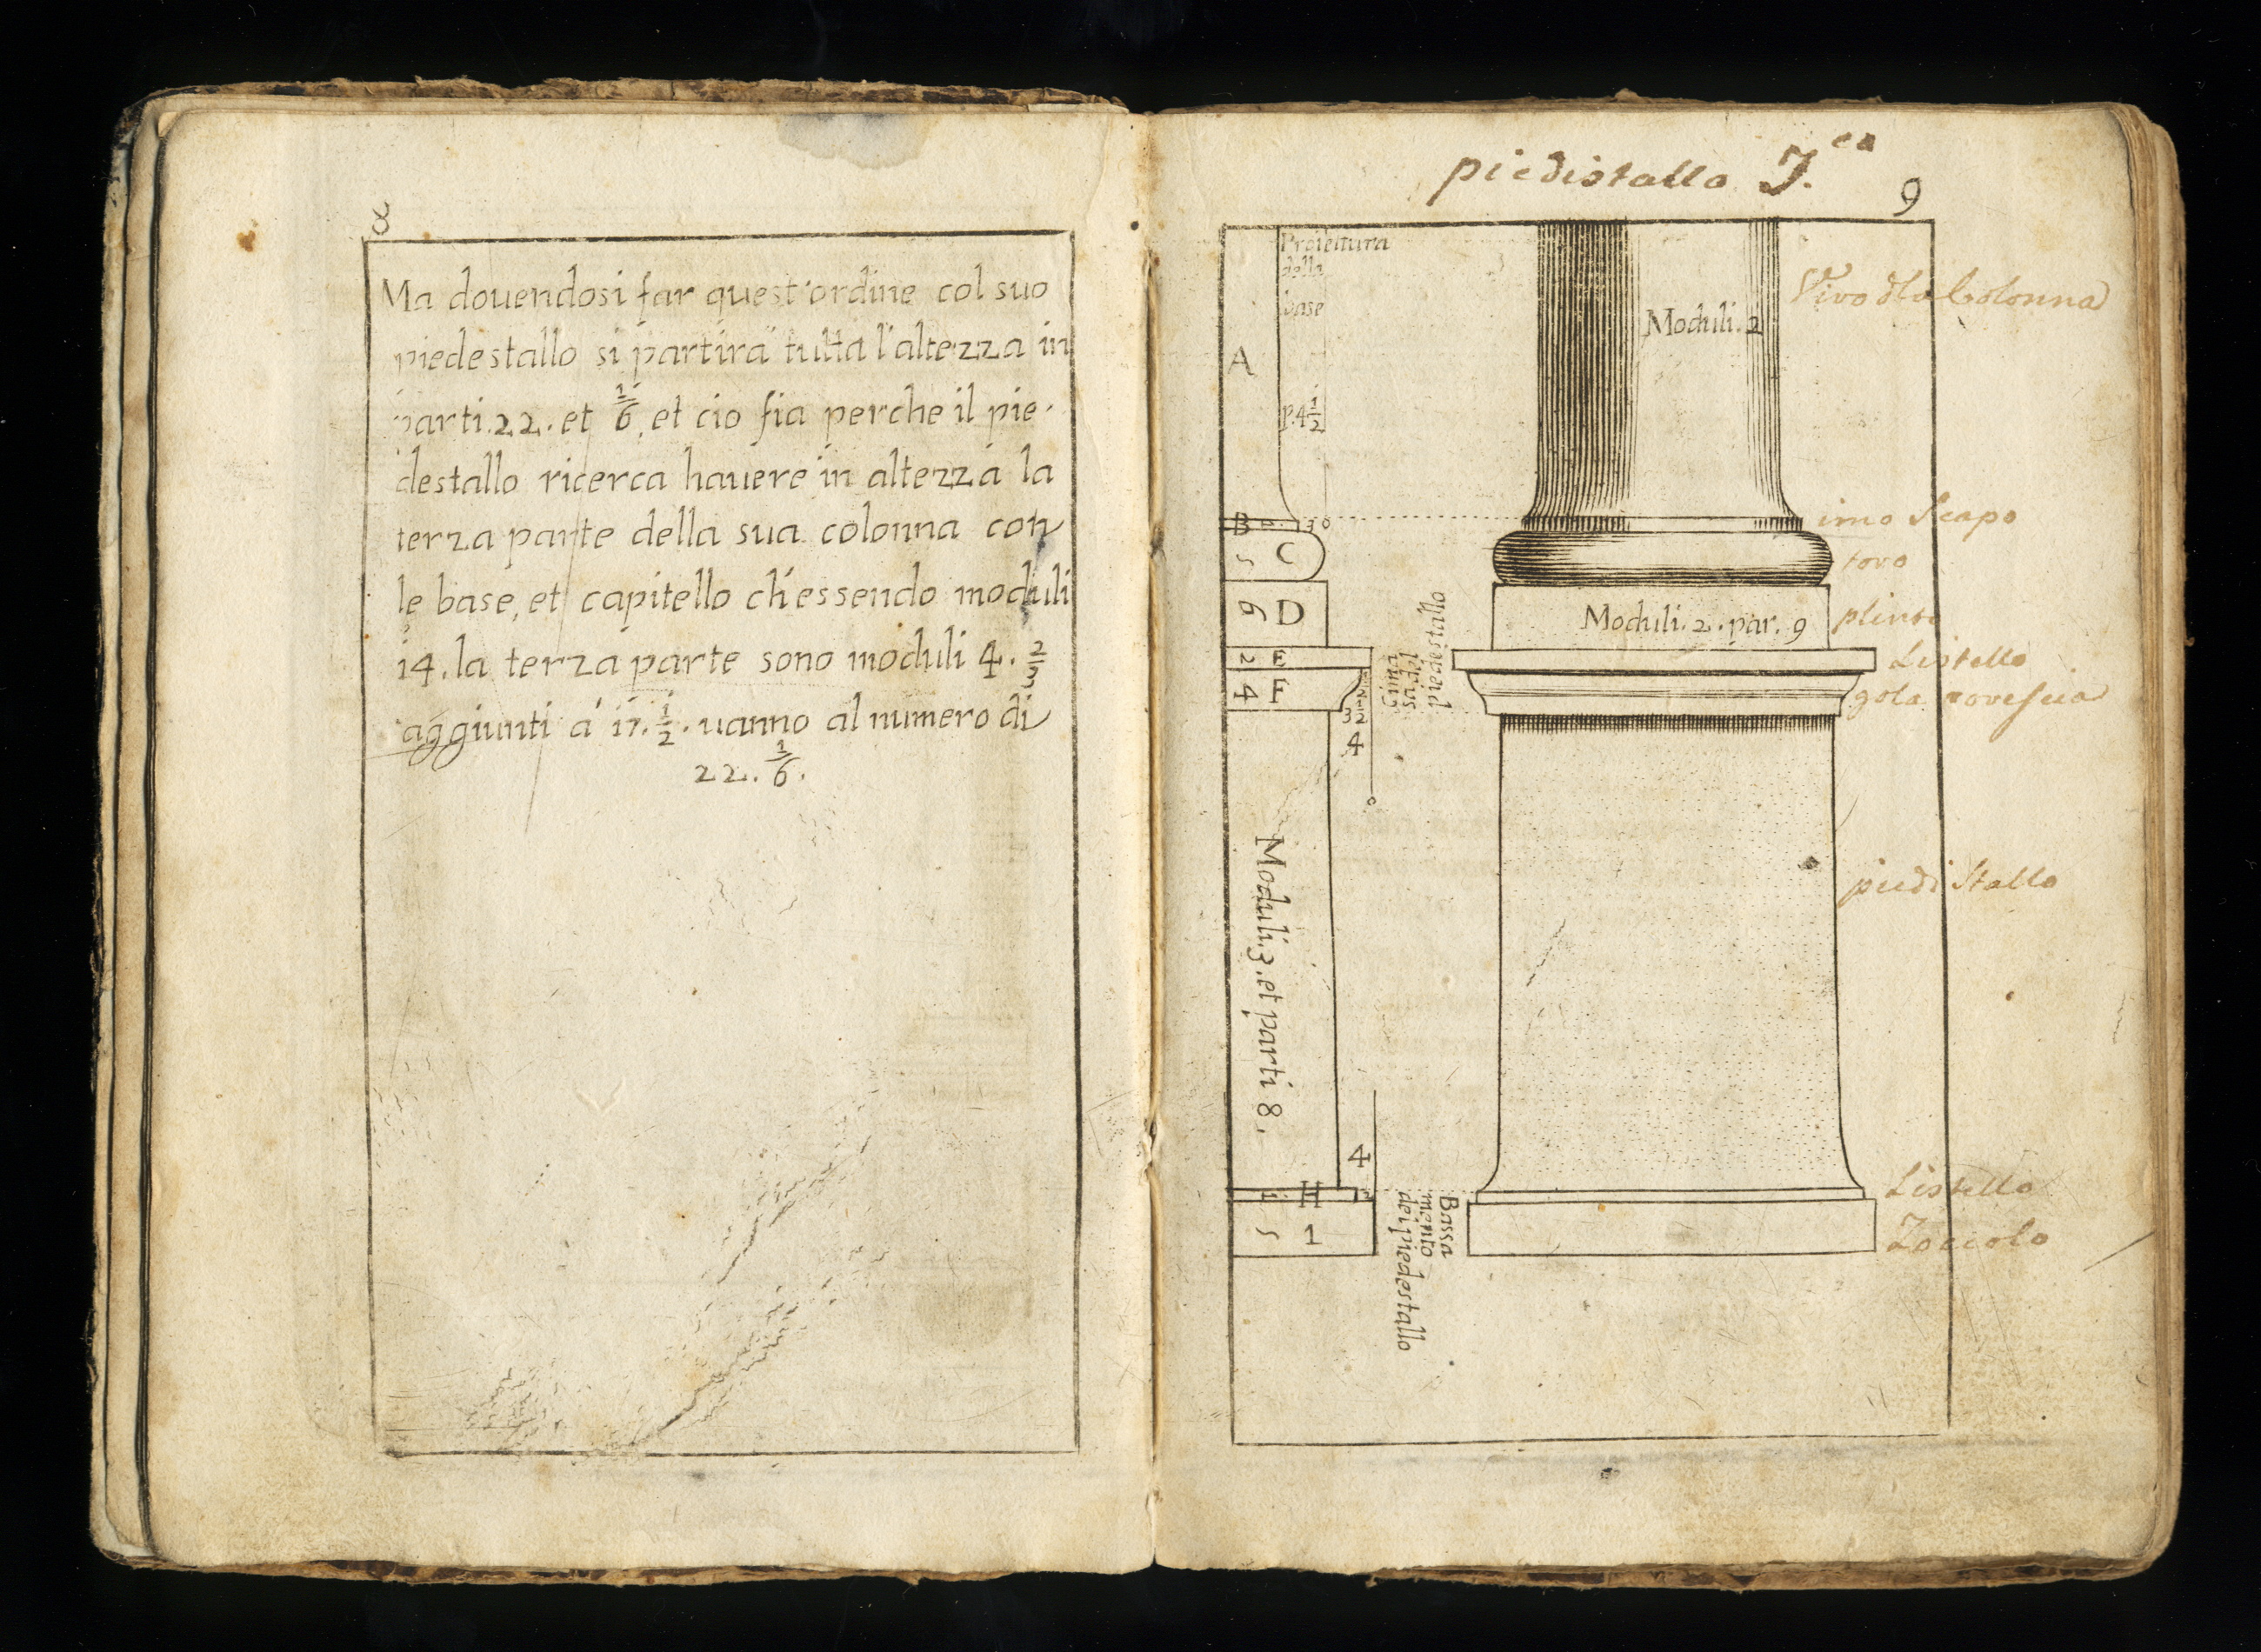 8
Ma douendosi far quest'ordine col suo
piedestallo si partirà tutta l'altezza in
parti.22. et 1/6, et cio fia perche il pie-
destallo ricerca hauere in altezza la
terza parte della sua colonna con
le base, et capitello ch'essendo moduli
14. la terza parte sono moduli 4. 2/3
aggiunti á 17. 1/2. uanno al numero di
22. 1/6.
piedistallo T.ca
9
Proiettura
della
base
A
p.4 1/2
Moduli. 2
Vivo dla Colonna
B
imo Scapo
5 C
toro
6 D
Moduli. 2. par. 9
plinto
2 E
Listello
4 F
gola rovescia
Cima
sa del
piedestallo
4
Moduli. 3. et parti 8.
piedi Stallo
4
H
Listello
5 I
Zoccolo
Bassa
mento
del piedestallo